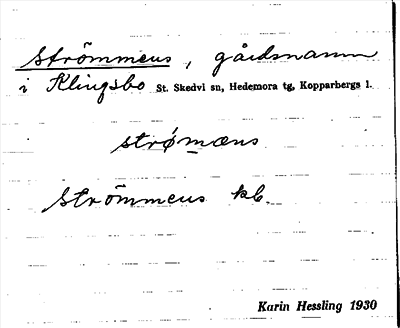 Strömmens, gårdsnamn
i Klingsbo St. Skedvi sn, Hedemora tg, Kopparbergs l.
strømæns
Strömmens kb.
Karin Hessling 1930